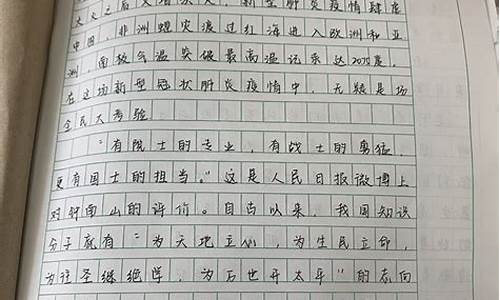 火灾之后又增添人，新型肺炎疫情肆虐
中国，非洲蝗灾渡过红海进入欧洲和亚
洲，南极气温突破最高温记录达20℃度。
在这场新型冠状肺炎疫情中，无疑是场
全民大考验
"有院士的专业，有战士的勇猛，
更有国士的担当。"这是人民日报微博上
对钟南山的评价。自古以来，我国知识
分子就有"为天地立心，为生民立命，
为往圣继绝学，为万世开太平"的志向